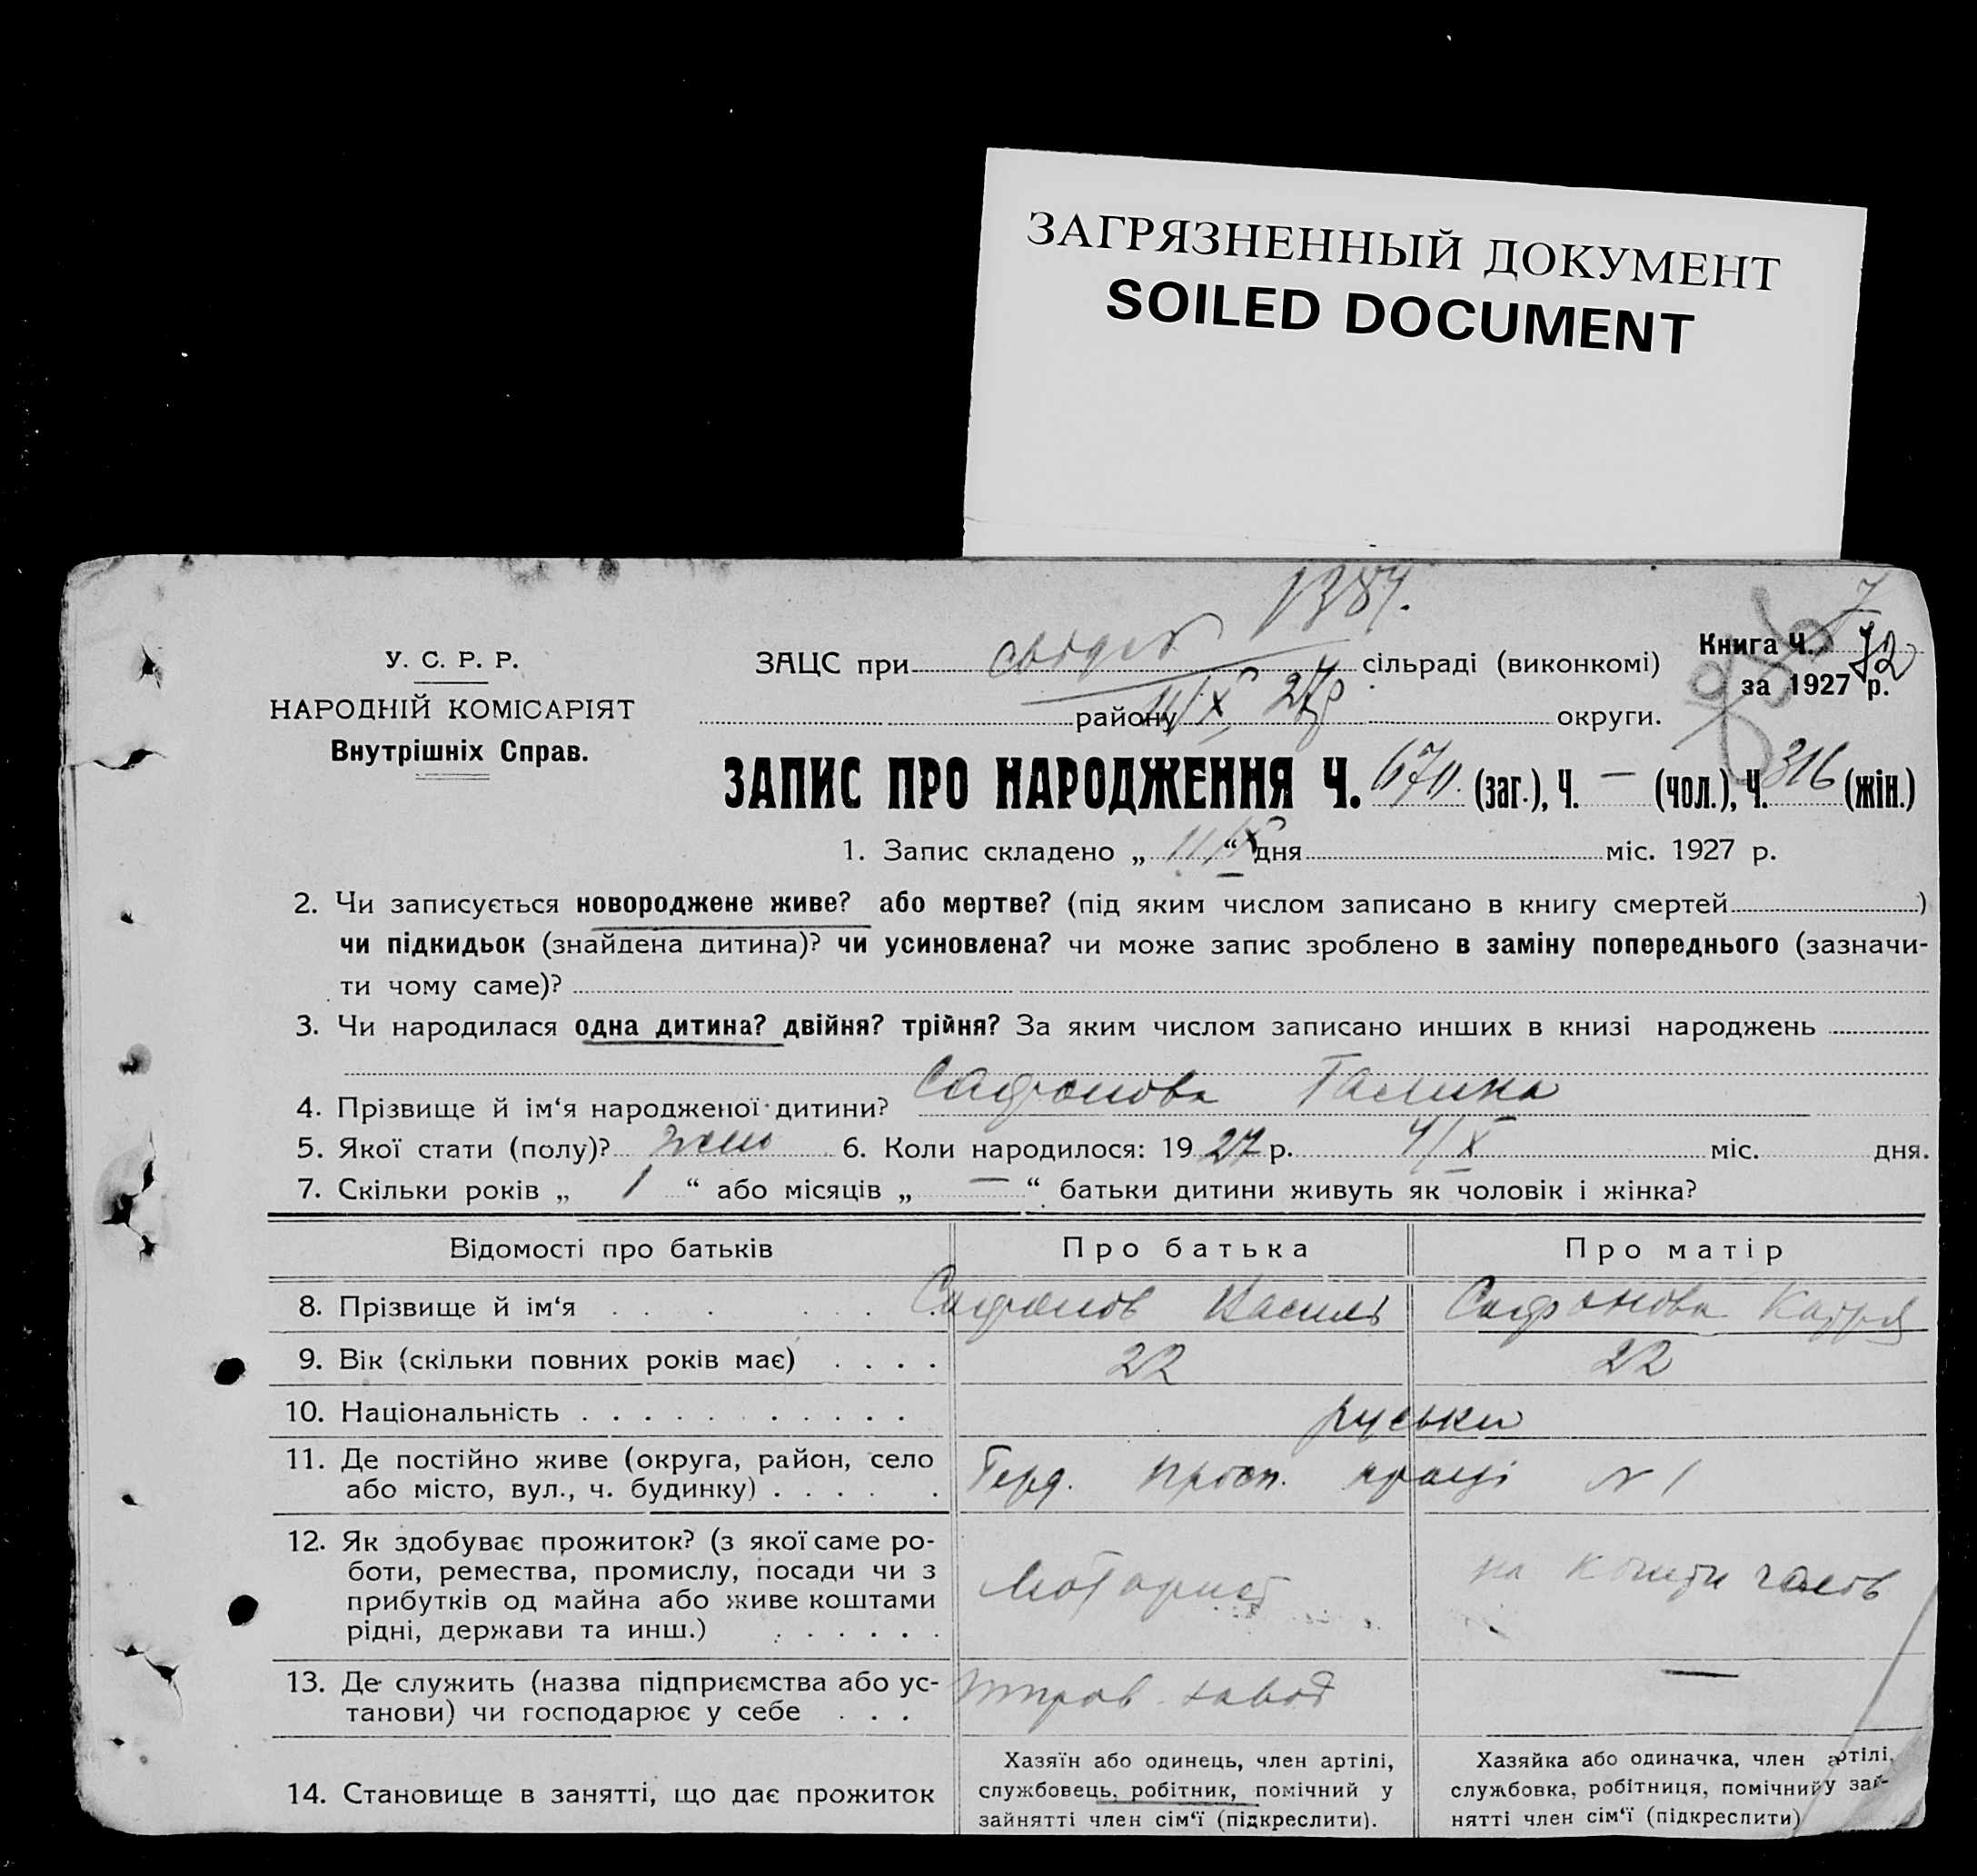 ЗАГРЯЗНЕННЫЙ ДОКУМЕНТ
SOILED DOCUMENT
1384.
7
У. С. Р. Р.
НАРОДНІЙ КОМІСАРІЯТ
Внутрішніх Справ.
ЗАЦС при сільраді (виконкомі)
району 11/X 27р округи.
Книга Ч. 72
за 1927 р.
ЗАПИС ПРО НАРОДЖЕННЯ Ч. 670. (заг.), Ч. — (чол.), Ч. 316 (жін.)
1. Запис складено „ 11/X “ дня міс. 1927 р.
2. Чи записується новороджене живе? або мертве? (під яким числом записано в книгу смертей )
чи підкидьок (знайдена дитина)? чи усиновлена? чи може запис зроблено в заміну попереднього (зазначи-
ти чому саме)?
3. Чи народилася одна дитина? двійня? трійня? За яким числом записано инших в книзі народжень
4. Прізвище й ім‘я народженої дитини? Сафонова Галина
5. Якої стати (полу)? жін 6. Коли народилося: 19 27 р. 4/X міс. дня.
7. Скільки років „ 1 “ або місяців „ — “ батьки дитини живуть як чоловік і жінка?
Відомості про батьків Про батька Про матір
8. Прізвище й ім‘я Сафонов Василь Сафонова Катря
9. Вік (скільки повних років має) 22 22
10. Національність руськи
11. Де постійно живе (округа, район, село
або місто, вул., ч. будинку) просп. праці № 1
12. Як здобуває прожиток? (з якої саме ро-
боти, ремества, промислу, посади чи з
прибутків од майна або живе коштами
рідні, держави та инш.) Моторист на кошти чолов
13. Де служить (назва підприємства або ус-
танови) чи господарює у себе завод —
14. Становище в занятті, що дає прожиток
Хазяїн або одинець, член артілі,
службовець, робітник, помічний у
зайнятті член сім‘ї (підкреслити).
Хазяйка або одиначка, член артілі,
службовка, робітниця, помічний у зай-
нятті член сім‘ї (підкреслити)